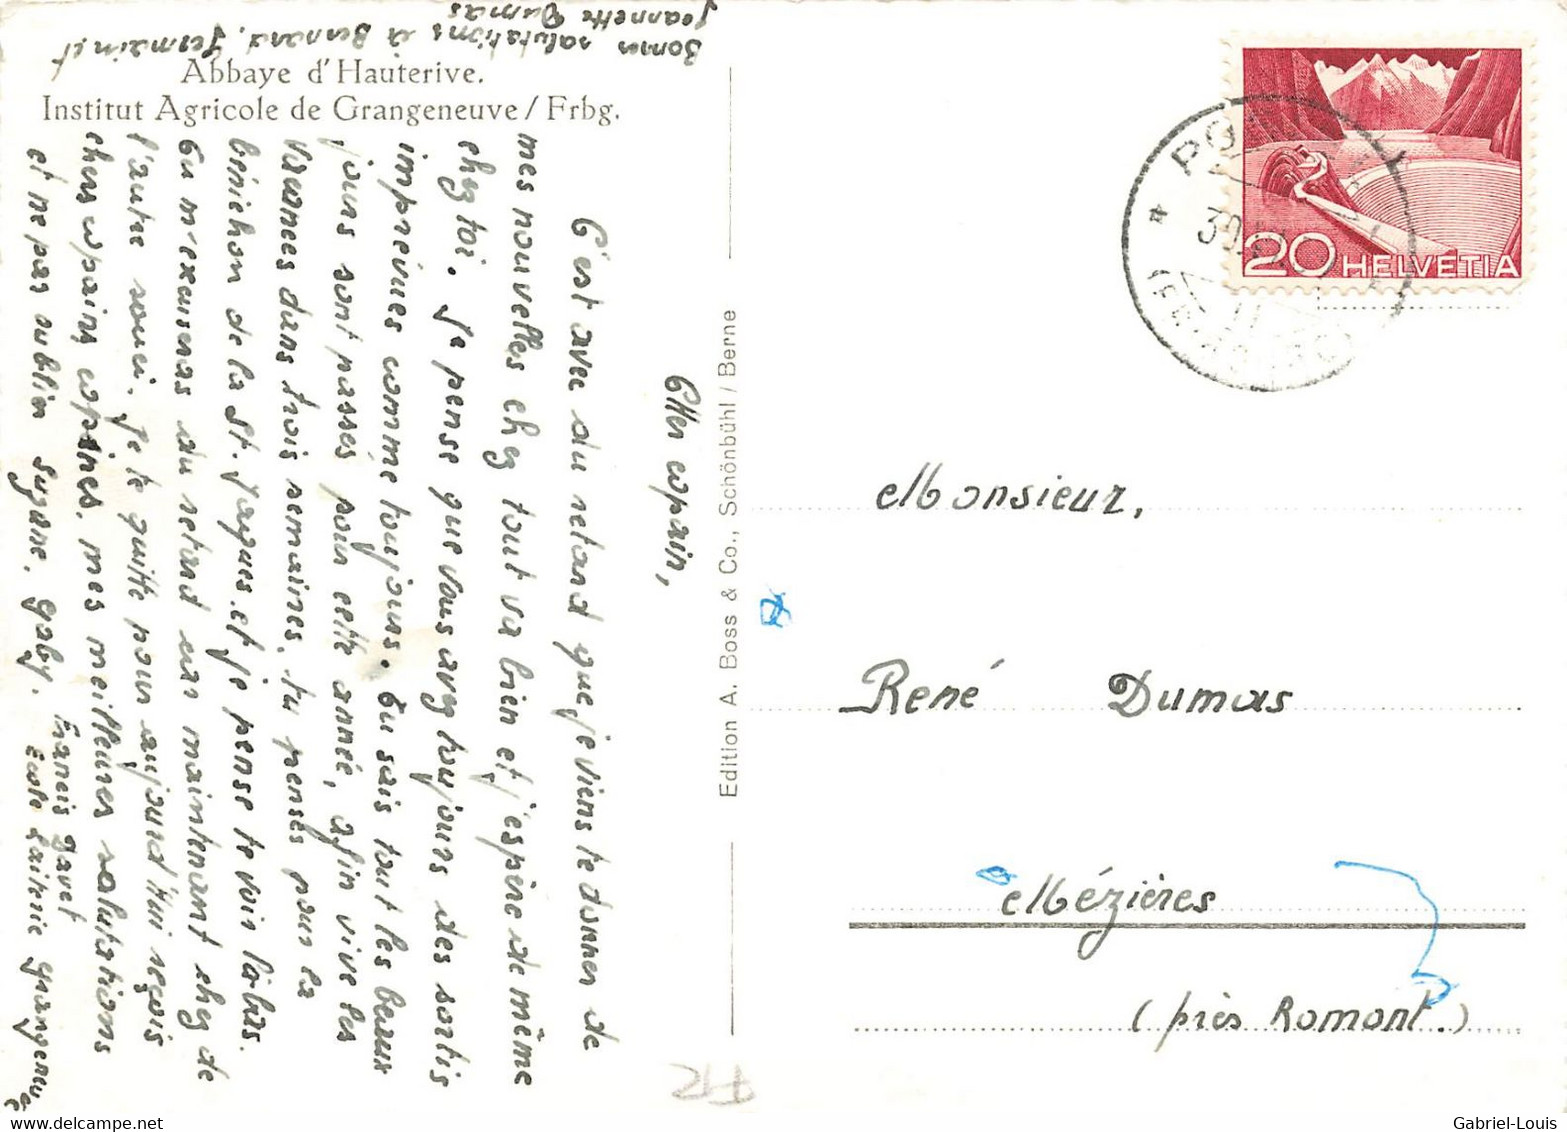 Bonnes salutations à Bernard, Germain et
Jeannette Dumas
Abbaye d'Hauterive.
Institut Agricole de Grangeneuve / Frbg.
Cher copain,
C'est avec du retard que je viens te donner de
mes nouvelles chez tout va bien et j'espère de même
chez toi. Je pense que vous avez toujours des sortis
imprévues comme toujours. Tu sais tout les beaux
jours sont passés pour cette année, afin vive les
vacances dans trois semaines, tu penses pour la
bénichon de la St. Jaques. et je pense te voir là-bas.
Tu m'excuseras du retard car maintenant chez de
l'autre souci. Je te quitte pour aujourd'hui reçois
chers copains, copines, mes meilleures salutations
et ne pas oublier Suzane, Gaby.
Francis Gavet
Ecole Laitrie Grangeneuve
Edition A. Boss & Co., Schönbühl / Berne
20 HELVETIA
Monsieur,
René Dumas
Mézières
(près Romont.)
Gabriel-Louis